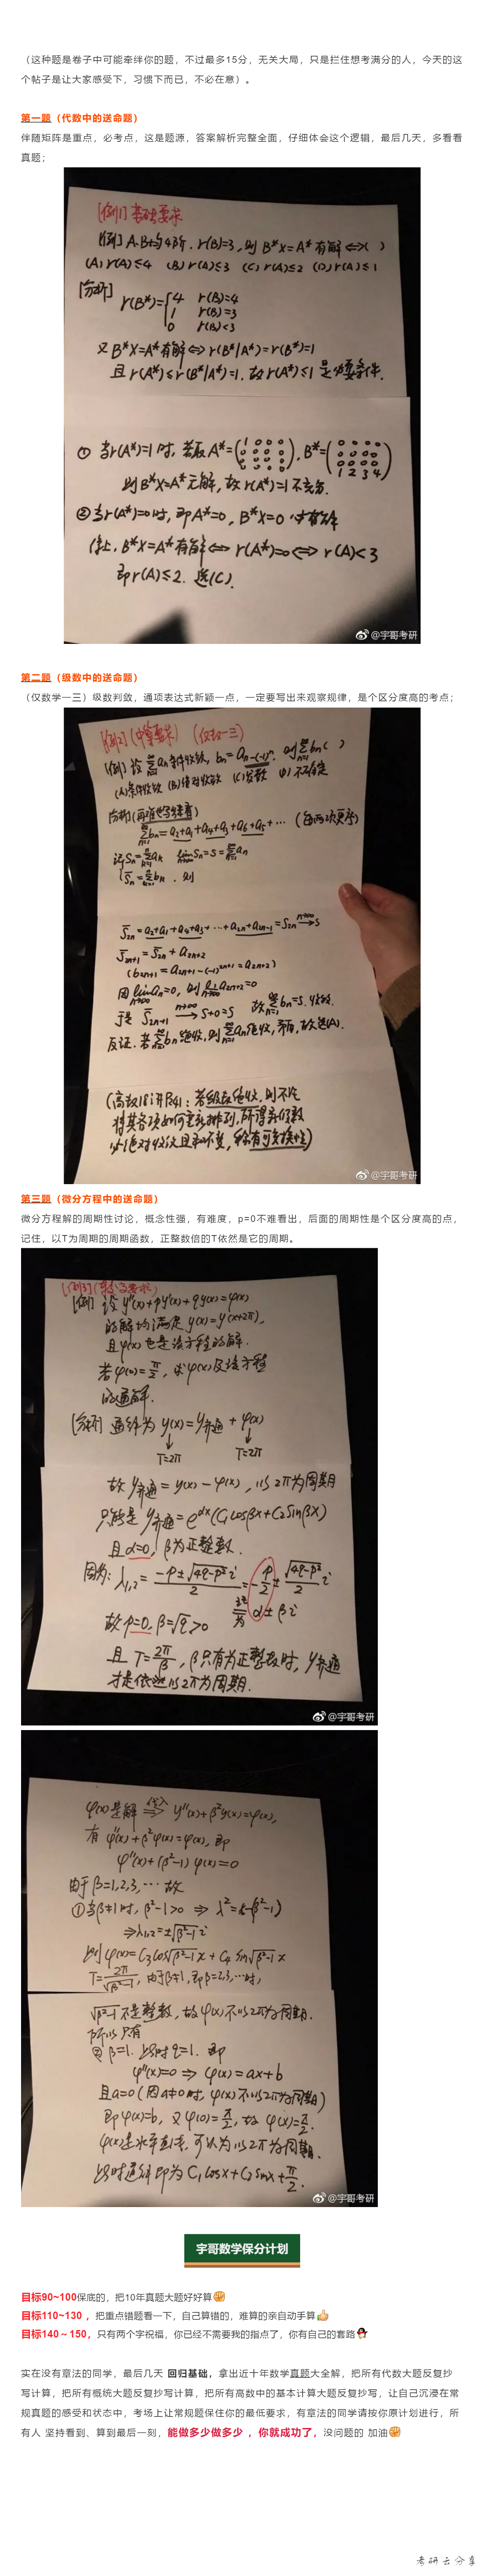 （这种题是卷子中可能牵绊你的题，不过最多15分，无关大局，只是拦住想考满分的人，今天的这
个帖子是让大家感受下，习惯下而已，不必在意）。
第一题（代数中的送命题）
伴随矩阵是重点，必考点，这是题源，答案解析完整全面，仔细体会这个逻辑，最后几天，多看看
真题；
[例1] 基础要求
[例] A.B均4阶. r(B)=3, 则 B*X=A* 有解⇔( )
(A) r(A)≤4 (B) r(A)≤3 (C) r(A)≤2 (D) r(A)≤1
[分析] r(B*)={4 r(B)=4
1 r(B)=3
0 r(B)<3
又 B*X=A*有解⇔r(B*|A*)=r(B*)=1
且 r(A*)≤r(B*|A*)=1. 故r(A*)≤1 是必要条件.
① 当r(A*)=1 时, 若取 A*=(1 0 0 0, B*=(0 0 0 0
1 2 3 4)
则B*X=A*无解, 故r(A*)=1不充分.
②当r(A*)=0时, 即A*=0, B*X=0 必有解
综上, B*X=A*有解⇔r(A*)=0⇔r(A)<3
即r(A)≤2. 选(C).
@宇哥考研
第二题（级数中的送命题）
（仅数学一三）级数判敛，通项表达式新颖一点，一定要写出来观察规律，是个区分度高的考点；
[例2] (中等要求) (仅数一三)
[例] 设 ∑an条件收敛, bn=a n-(-1)^n. 则∑bn( )
(A)条件收敛 (B)绝对收敛 (C)发散 (D)不确定
∑bn=a2+a1+a4+a3+a6+a5+⋯ (每两项更序)
记Sn=∑ak lim Sn=S=∑an
S̄n=∑bk. 则
S̄2n=a2+a1+a4+a3+⋯+a2n+a2n-1=S2n→S
S̄2n+1=S̄2n+a2n+2
(b2n+1=a2n+1-(-1)^2n+1=a2n+2)
因 lim an=0, 则 lim a2n+2=0
于是 S̄2n+1→S+0=S 故∑bn=S.收敛.
反证. 若∑bn绝收, 则∑an绝收, 矛盾, 故选(A).
(高数18讲P241: 若级数绝收, 则不论
将其各项如何重新排列, 所得新级数
仍绝对收敛且和不变, 称有可交换性)
@宇哥考研
第三题（微分方程中的送命题）
微分方程解的周期性讨论，概念性强，有难度，p=0不难看出，后面的周期性是个区分度高的点，
记住，以T为周期的周期函数，正整数倍的T依然是它的周期。
[例] 设 y''(x)+py'(x)+qy(x)=φ(x)
的解均满足 y(x)=y(x+2π),
且φ(x)也是该方程的解.
若φ(0)=π/2, 求φ(x)及该方程
的通解.
[分析] 通解为 y(x)=y齐通+φ(x)
T=2π T=2π
故 y齐通=y(x)-φ(x), 以2π为周期
只能是 y齐通=e^αx(C1cosβx+C2sinβx)
且 α=0, β为正整数.
因为: λ1,2=(-p±√(4q-p²) i)/2=-p/2±√(4q-p²)/2 i
记为 α±βi
故 p=0, β=√q>0
且 T=2π/β, β只有为正整数时, y齐通
才是依然以2π为周期.
@宇哥考研
φ(x)是解 (代入)⇒ y''(x)+β²y(x)=φ(x),
有 φ''(x)+β²φ(x)=φ(x), 即
φ''(x)+(β²-1)φ(x)=0
由于β=1,2,3,⋯故
①当β≠1时, β²-1>0 ⇒ λ²=-(β²-1)
⇒λ1,2=±√(β²-1) i
则 φ(x)=C3cos√(β²-1)x+C4 sin√(β²-1)x
T=2π/√(β²-1), 由于β≠1, 即β=2,3,⋯时,
√(β²-1)不是整数, 故φ(x)不以2π为周期.
所以只有
② β=1. 此时q=1. 即
φ''(x)=0 ⇒ φ(x)=ax+b
且a=0 (因a≠0时, φ(x)不以2π为周期)
即φ(x)=b, 又φ(0)=π/2, 故 φ(x)=π/2.
φ(x)是水平直线, 可认为以2π为周期.
此时通解即为 C1cosx+C2sinx+π/2.
@宇哥考研
宇哥数学保分计划
目标90~100保底的，把10年真题大题好好算
目标110~130 ，把重点错题看一下，自己算错的，难算的亲自动手算
目标140～150，只有两个字祝福，你已经不需要我的指点了，你有自己的套路
实在没有章法的同学，最后几天 回归基础，拿出近十年数学真题大全解，把所有代数大题反复抄
写计算，把所有概统大题反复抄写计算，把所有高数中的基本计算大题反复抄写，让自己沉浸在常
规真题的感受和状态中，考场上让常规题保住你的最低要求，有章法的同学请按你原计划进行，所
有人 坚持看到、算到最后一刻，能做多少做多少 ，你就成功了，没问题的 加油
考研云分享